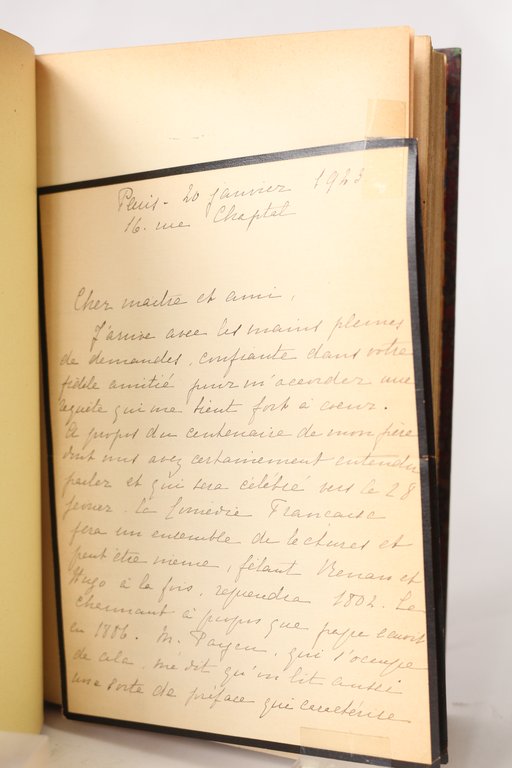 Paris - 20 janvier 1923
16. rue Chaptal
Cher maître et ami,
J'arrive avec les mains pleines
de demandes, confiante dans votre
fidèle amitié pour m'accorder une
requête qui me tient fort à coeur.
A propos du centenaire de mon père
dont vous avez certainement entendu
parler et qui sera célébré vers le 28
février. la Comédie Française
fera un ensemble de lectures et
peut être même, fêtant Renan et
Hugo à la fois, reprendra 1802. Le
charmant à propos que papa écrivit
en 1886. M. Payen, qui s'occupe
de cela, me dit qu'on lit aussi
une sorte de préface qui caractérise